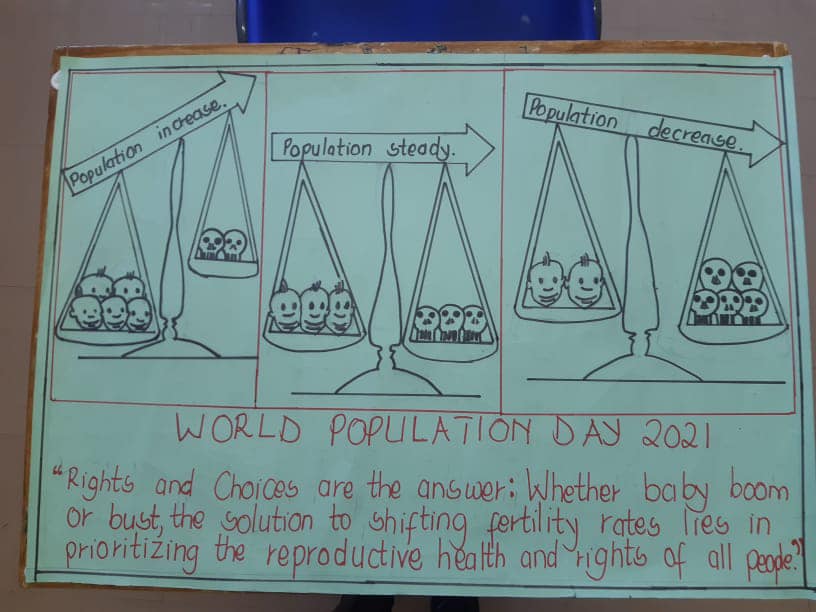 Population increase.
Population steady.
Population decrease.
WORLD POPULATION DAY 2021
"Rights and Choices are the answer: Whether baby boom
or bust, the solution to shifting fertility rates lies in
prioritizing the reproductive health and rights of all people."